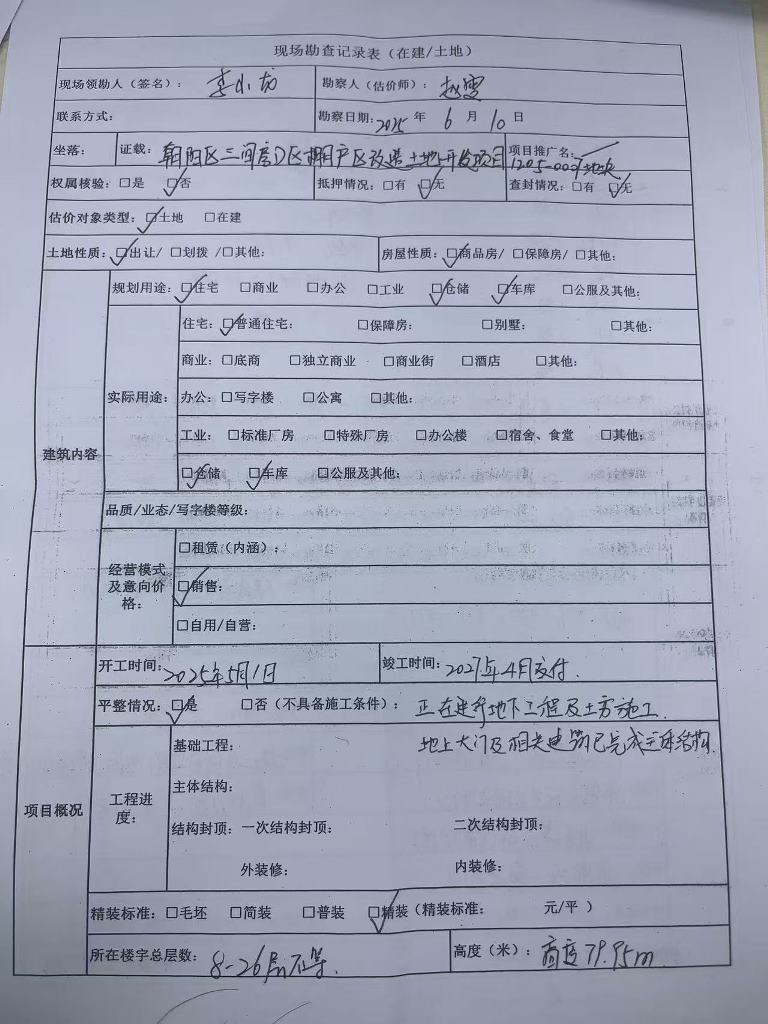 现场勘查记录表（在建/土地）
现场领勘人（签名）： 李小龙 勘察人（估价师）： 赵雯
联系方式： 勘察日期：2025 年 6 月 10 日
坐落： 证载：朝阳区三间房D区棚户区改造土地开发项目 项目推广名：
1205-0007地块
权属核验：☐是 ☑否 抵押情况：☐有 ☑无 查封情况：☐有 ☑无
估价对象类型：☑土地 ☐在建
土地性质：☑出让/ ☐划拨 /☐其他： 房屋性质：☑商品房/ ☐保障房/ ☐其他：
建筑内容
规划用途：☑住宅 ☐商业 ☐办公 ☐工业 ☑仓储 ☑车库 ☐公服及其他：
实际用途：
住宅：☑普通住宅： ☐保障房： ☐别墅： ☐其他：
商业：☐底商 ☐独立商业 ☐商业街 ☐酒店 ☐其他：
办公：☐写字楼 ☐公寓 ☐其他：
工业：☐标准厂房 ☐特殊厂房 ☐办公楼 ☐宿舍、食堂 ☐其他：
☑仓储 ☑车库 ☐公服及其他：
品质/业态/写字楼等级：
经营模式
及意向价
格：
☐租赁（内涵）：
☑销售：
☐自用/自营：
项目概况
开工时间：2025年5月1日 竣工时间：2027年4月交付.
平整情况：☑是 ☐否（不具备施工条件）： 正在建设地下工程及土方施工.
工程进
度：
基础工程： 地上大门及相关建筑已完成主体结构.
主体结构：
结构封顶：一次结构封顶： 二次结构封顶：
外装修： 内装修：
精装标准：☐毛坯 ☐简装 ☐普装 ☑精装（精装标准： 元/平 ）
所在楼宇总层数： 8-26层不等. 高度（米）： 高度79.95m